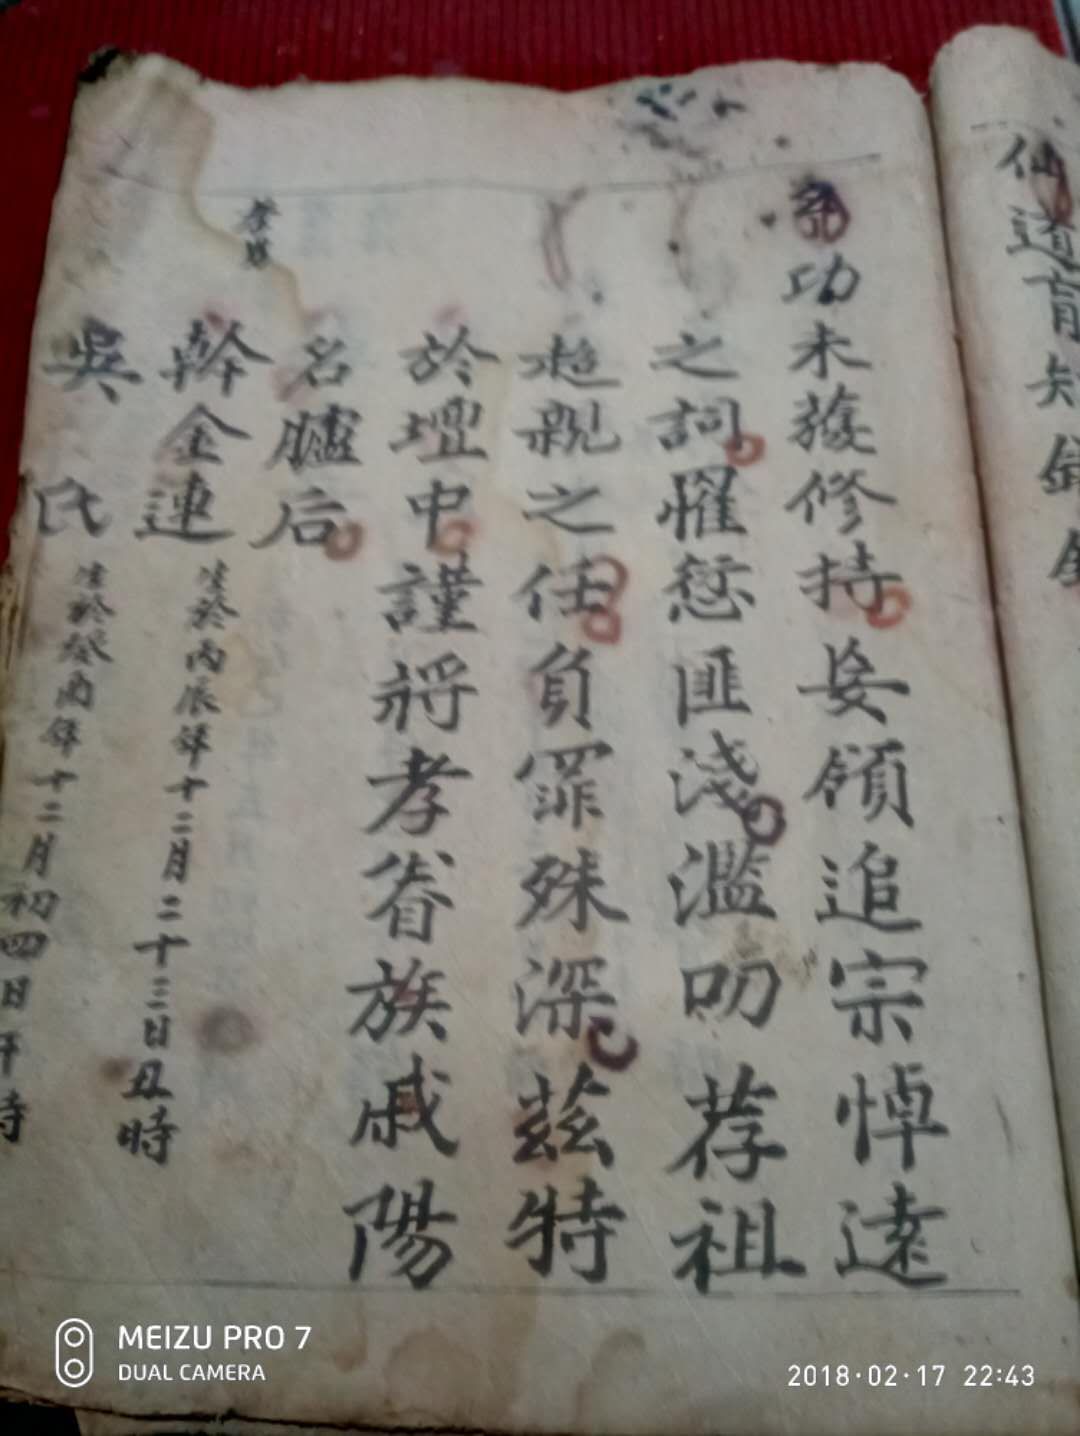 仙道育知錄
功未獲修持妄領追宗悼遠
之詞懼愆匪淺濫叨荐祖
超親之任負罪殊深茲特
於壇中謹將孝眷族戚陽
名臚后
孝男
幹金連 生於丙辰年十二月二十三日丑時
吳氏 生於癸酉年十二月初四日午時
MEIZU PRO 7
DUAL CAMERA
2018·02·17 22:43